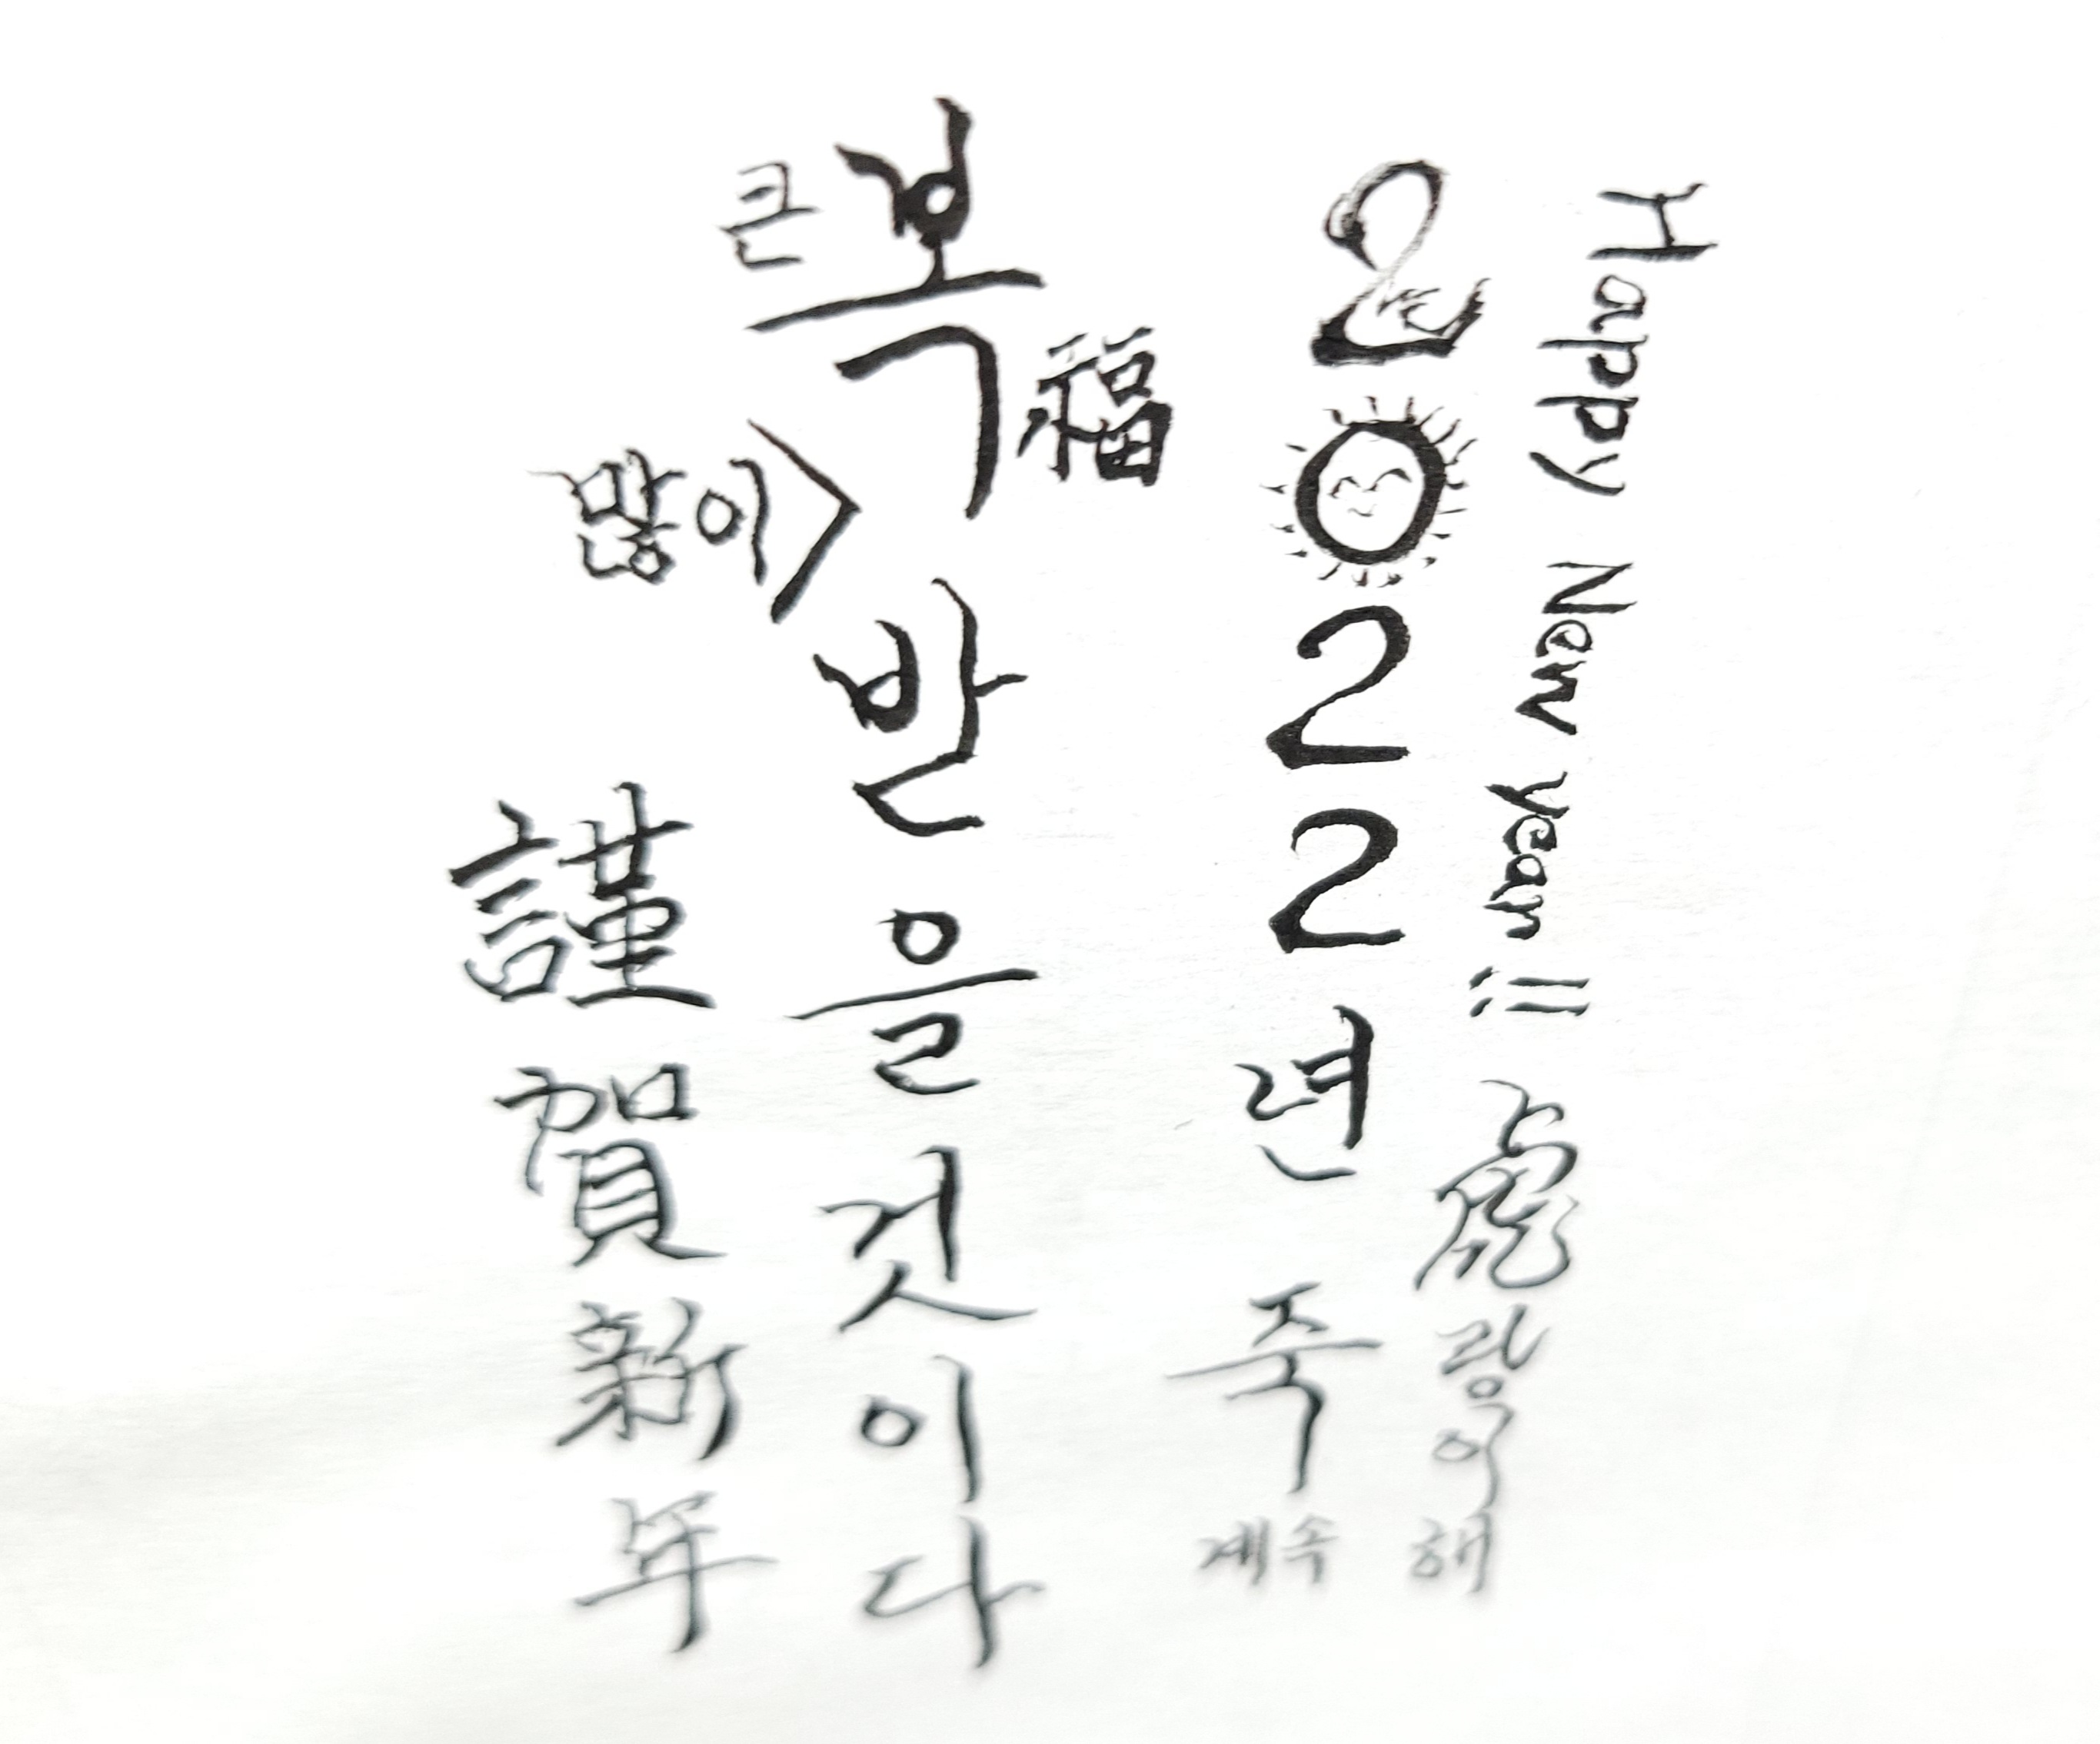 Happy New year!!
虎랑이해
2022년 죽
계속
큰
복
福
많이
받을것이다
謹賀新年